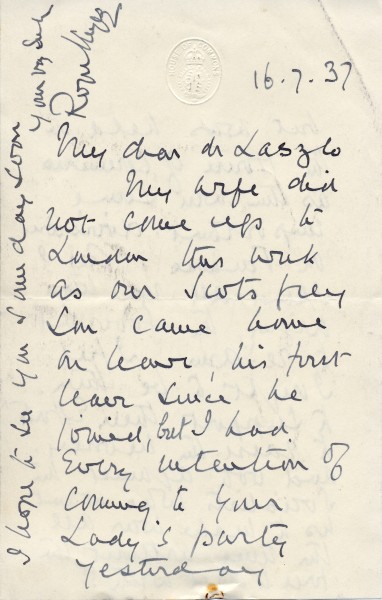 16.7.37
My dear de Laszlo
My wife did
not come up to
London this week
as our Scots Grey
Son came home
on leave, his first
leave since he
joined, but I had
Every intention of
coming to your
Lady's party
yesterday
I hope to see you some day soon
Yours very sincerely
Roger Keyes